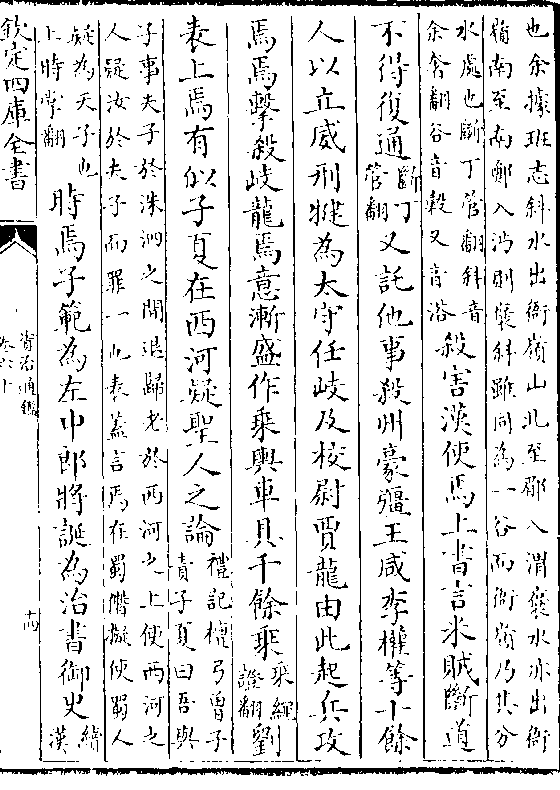 也余據班志斜水出衙嶺山北至郿入渭褒水亦出衙
嶺南至南鄭入沔則褒斜雖同為一谷而衙嶺乃其分
水處也斷丁管翻斜音
余奢翻谷音穀又音浴
殺害漢使焉上書言米賊斷道
不得復通斷丁管翻又託他事殺州豪彊王咸李權等十餘
人以立威刑犍為太守任岐及校尉賈龍由此起兵攻
焉焉擊殺岐龍焉意漸盛作乘輿車具千餘乘乘繩證翻劉
表上焉有似子夏在西河疑聖人之論
禮記檀弓曾子
責子夏曰吾與
子事夫子於洙泗之間退歸老於西河之上使西河之
人疑汝於夫子而罪一也表蓋言焉在蜀僭擬使蜀人
疑為天子也
上時掌翻
時焉子範為左中郎將誕為治書御史續漢
欽定四庫全書
資治通鑑
卷六十
十四